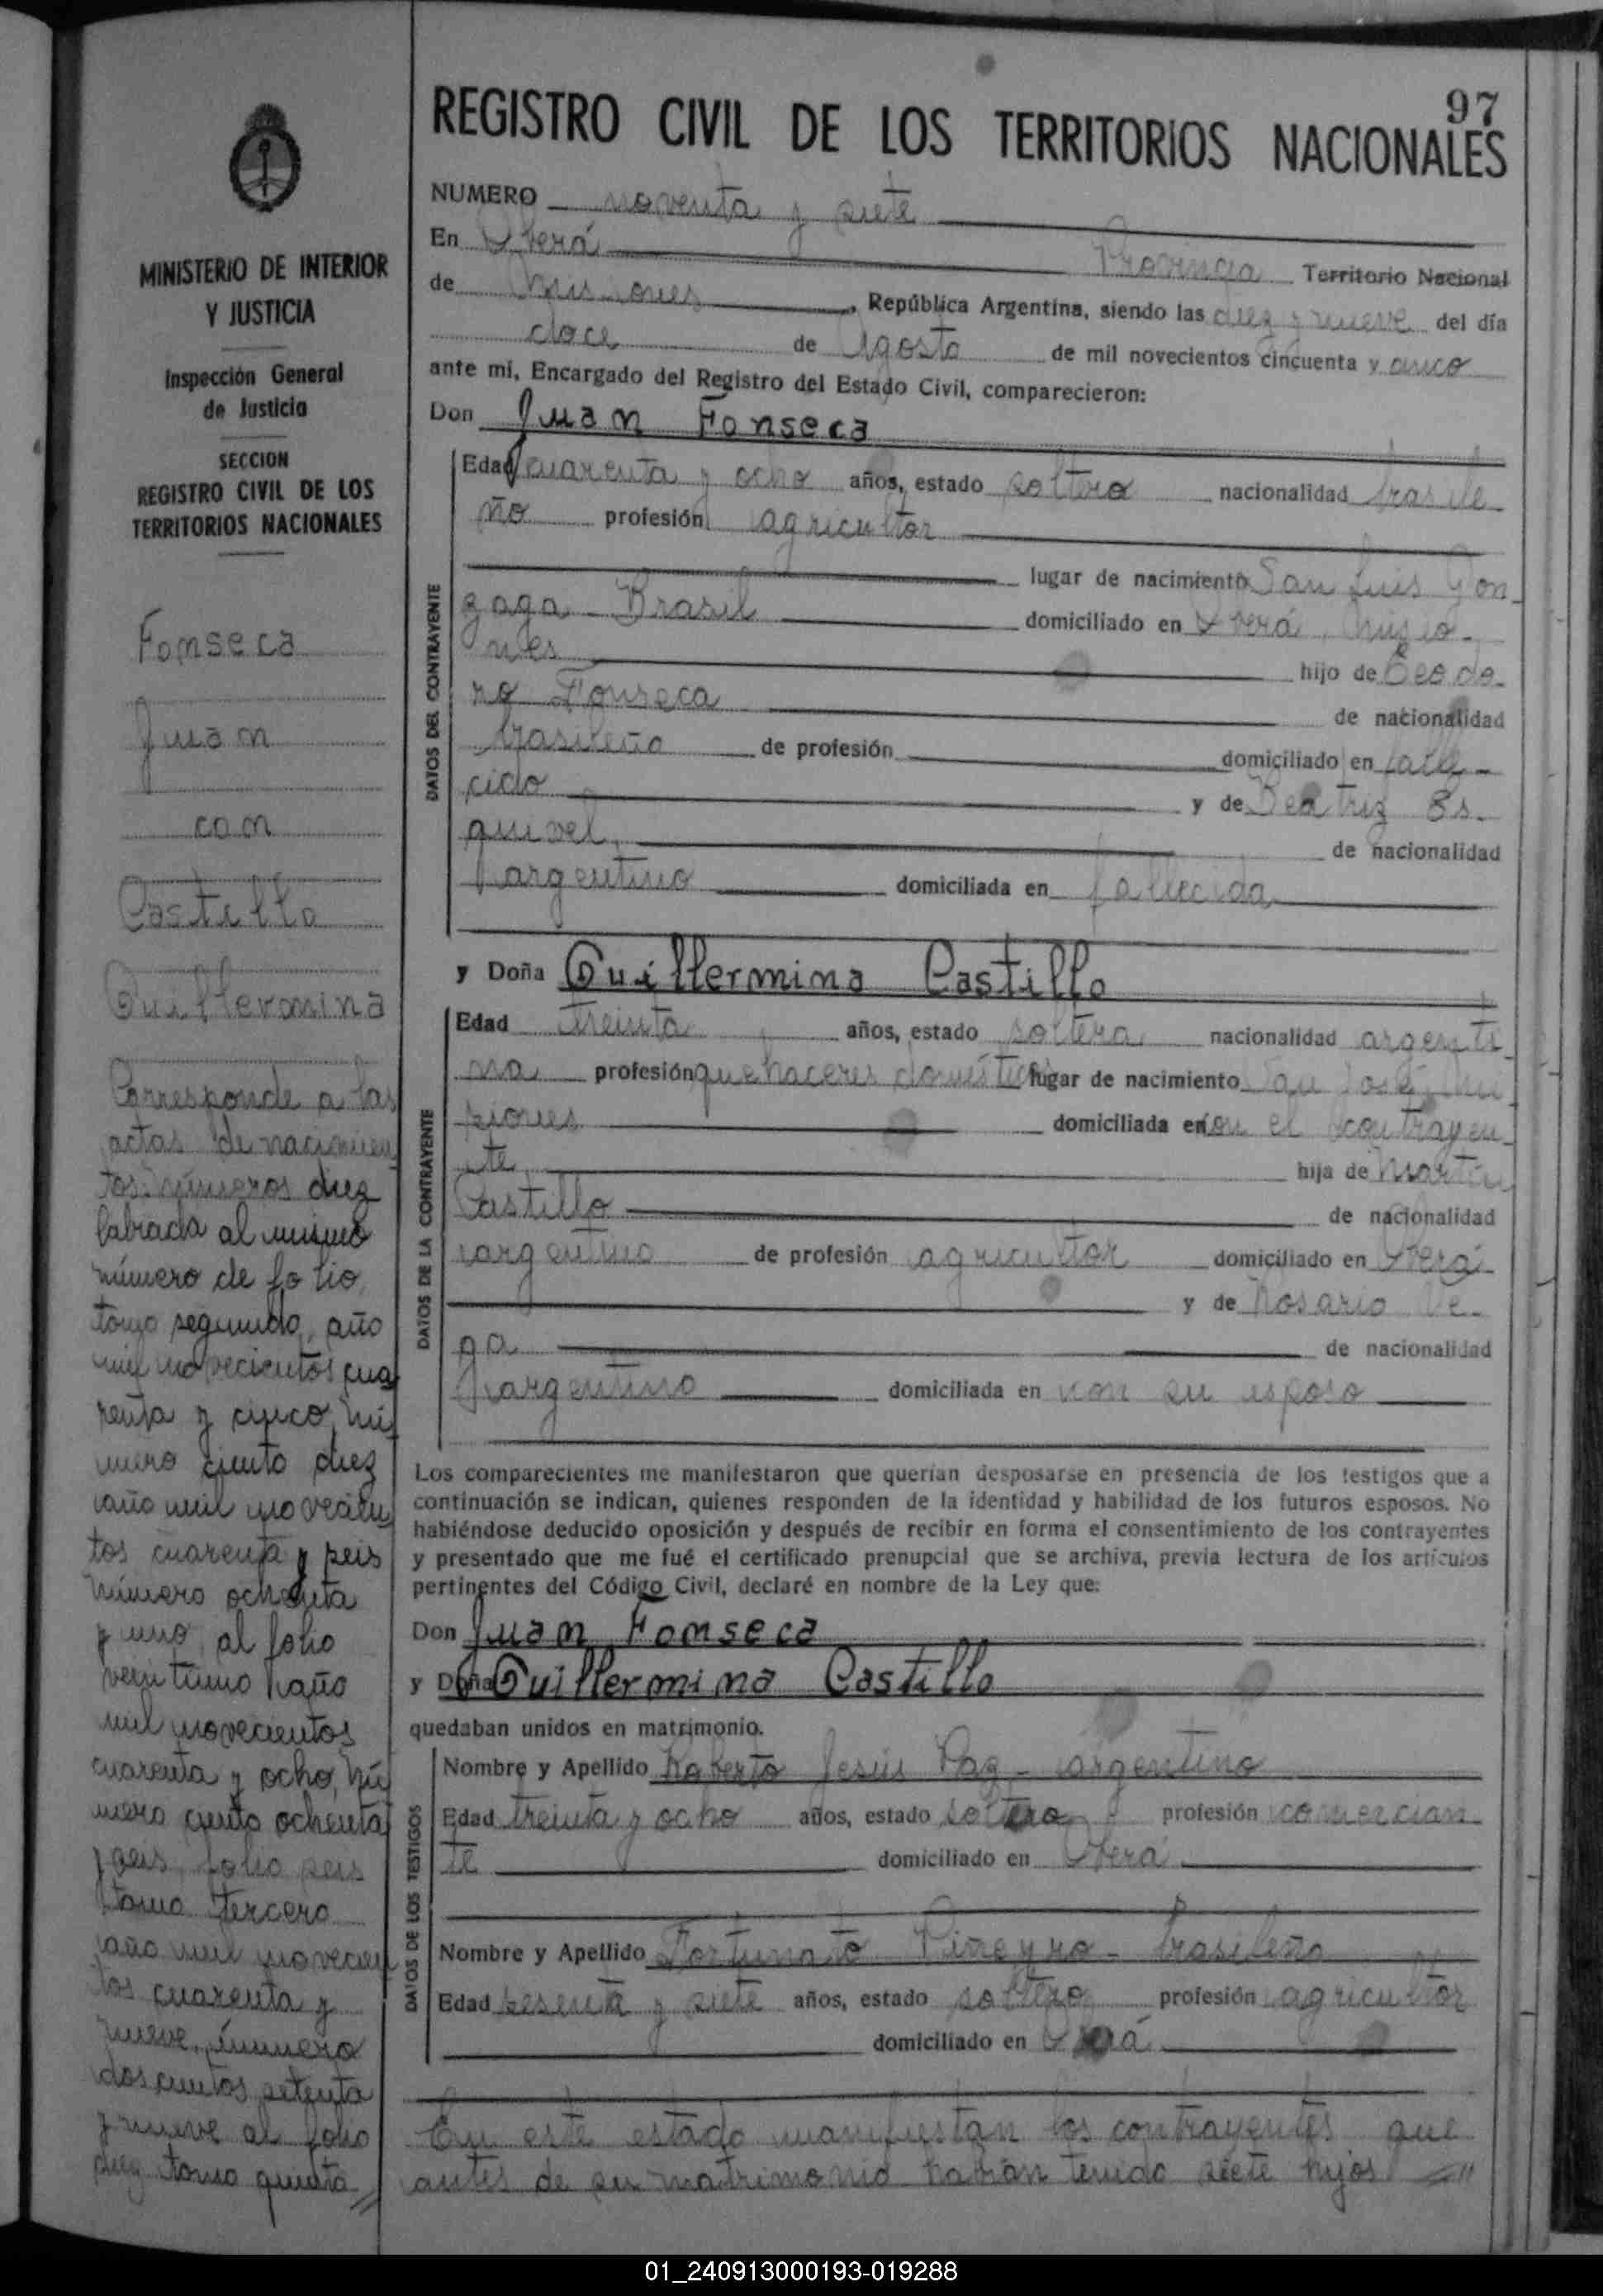 97
REGISTRO CIVIL DE LOS TERRITORIOS NACIONALES
MINISTERIO DE INTERIOR
Y JUSTICIA
Inspección General
de Justicia
SECCION
REGISTRO CIVIL DE LOS
TERRITORIOS NACIONALES
Fonseca
Juan
con
Castillo
Guillermina
Corresponde a las
actas de nacimien
tos: números diez
labrada al mismo
número de folio,
tomo segundo, año
mil novecientos cua
renta y cinco, nú
mero ciento diez
año mil novecien
tos cuarenta y seis
número ochenta
y uno al folio
veintiuno año
mil novecientos
cuarenta y ocho, nú
mero ciento ochenta
y seis, folio seis
tomo tercero
año mil novecien
tos cuarenta y
nueve, número
doscientos setenta
y nueve al folio
diez tomo quinto
NUMERO noventa y siete
En Oberá Provincia Territorio Nacional
de Misiones, República Argentina, siendo las diez y nueve del día
doce de Agosto de mil novecientos cincuenta y cinco
ante mí, Encargado del Registro del Estado Civil, comparecieron:
Don Juan Fonseca
DATOS DEL CONTRAYENTE
Edad cuarenta y ocho años, estado soltero nacionalidad brasile
ño profesión agricultor
lugar de nacimiento San Luis Gon-
zaga - Brasil domiciliado en Oberá, Misio-
nes hijo de Teodo-
ro Fonseca de nacionalidad
brasileña de profesión domiciliado en falle-
cido y de Beatriz Es-
quivel de nacionalidad
argentina domiciliada en fallecida
y Doña Guillermina Castillo
DATOS DE LA CONTRAYENTE
Edad treinta años, estado soltera nacionalidad argenti-
na profesión quehaceres domésticos lugar de nacimiento San José, Mi
siones domiciliada en con el contrayen-
te hija de Martín
Castillo de nacionalidad
argentino de profesión agricultor domiciliado en Oberá
y de Rosario Ve-
ga de nacionalidad
argentina domiciliada en con su esposo
Los comparecientes me manifestaron que querían desposarse en presencia de los testigos que a
continuación se indican, quienes responden de la identidad y habilidad de los futuros esposos. No
habiéndose deducido oposición y después de recibir en forma el consentimiento de los contrayentes
y presentado que me fué el certificado prenupcial que se archiva, previa lectura de los artículos
pertinentes del Código Civil, declaré en nombre de la Ley que:
Don Juan Fonseca
y Doña Guillermina Castillo
quedaban unidos en matrimonio.
DATOS DE LOS TESTIGOS
Nombre y Apellido Roberto Jesús Paz - argentino
Edad treinta y ocho años, estado soltero profesión comercian
te domiciliado en Oberá
Nombre y Apellido Fortunato Piñeyro - brasileño
Edad sesenta y siete años, estado soltero profesión agricultor
domiciliado en Oberá
En este estado manifiestan los contrayentes que
antes de su matrimonio habían tenido siete hijos
01_240913000193-019288